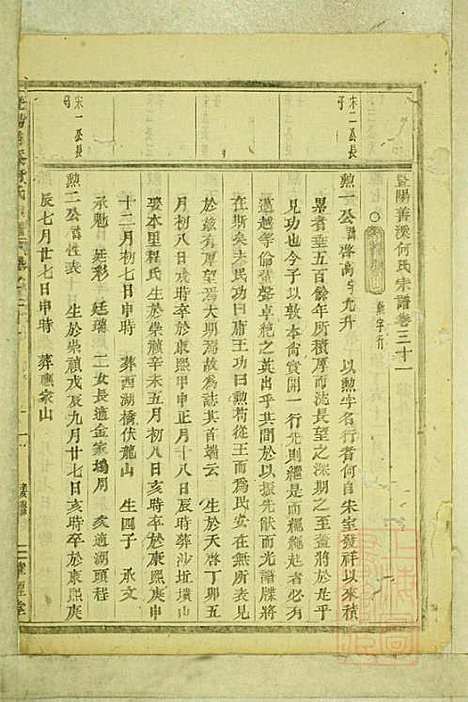 暨陽善溪何氏宗譜卷三十一
勲字行
宋二公長子
勲一公諱啓高字允升 以勲字名行者何自宋室發祥以來積
累者垂五百餘年所積厚而流長望之深期之至蓋將於是乎
見功也今子以敦本尚實開一行先則繼是而繩繩起者必有
邁越等倫蜚聲卓絶之英出乎其間於以振先猷而光譜牒將
在斯矣夫王功曰勲庸王功曰勲苟從王而爲民安在無所表見
於後有厚望焉大期焉故爲誌其首端云 生於天啓丁卯五
月初八日亥時卒於康熙甲申正月十八日辰時葬沙坵墳山
娶本里程氏 生於崇禎辛未五月初八日亥時卒於康熙庚申
十二月初七日申時 葬西湖橋伏龍山 生四子 承文
承魁 廷彩 廷璠 二女長適金家塢周 亥適湖頭程
宋一公長子
勲二公諱性表 生於崇禎戊辰九月廿七日亥時卒於康熙庚
辰七月廿七日申時 葬應家山